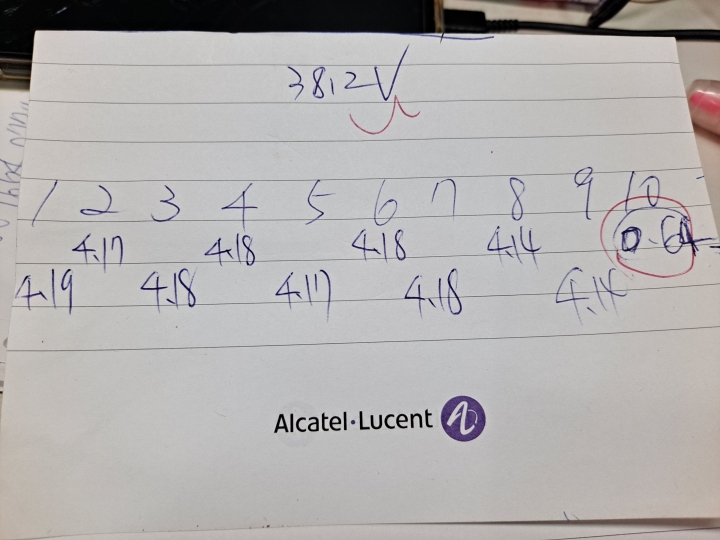 38.2V
1 2 3 4 5 6 7 8 9 10
4.17 4.18 4.18 4.14 0.64
4.19 4.18 4.17 4.18 4.14
Alcatel·Lucent